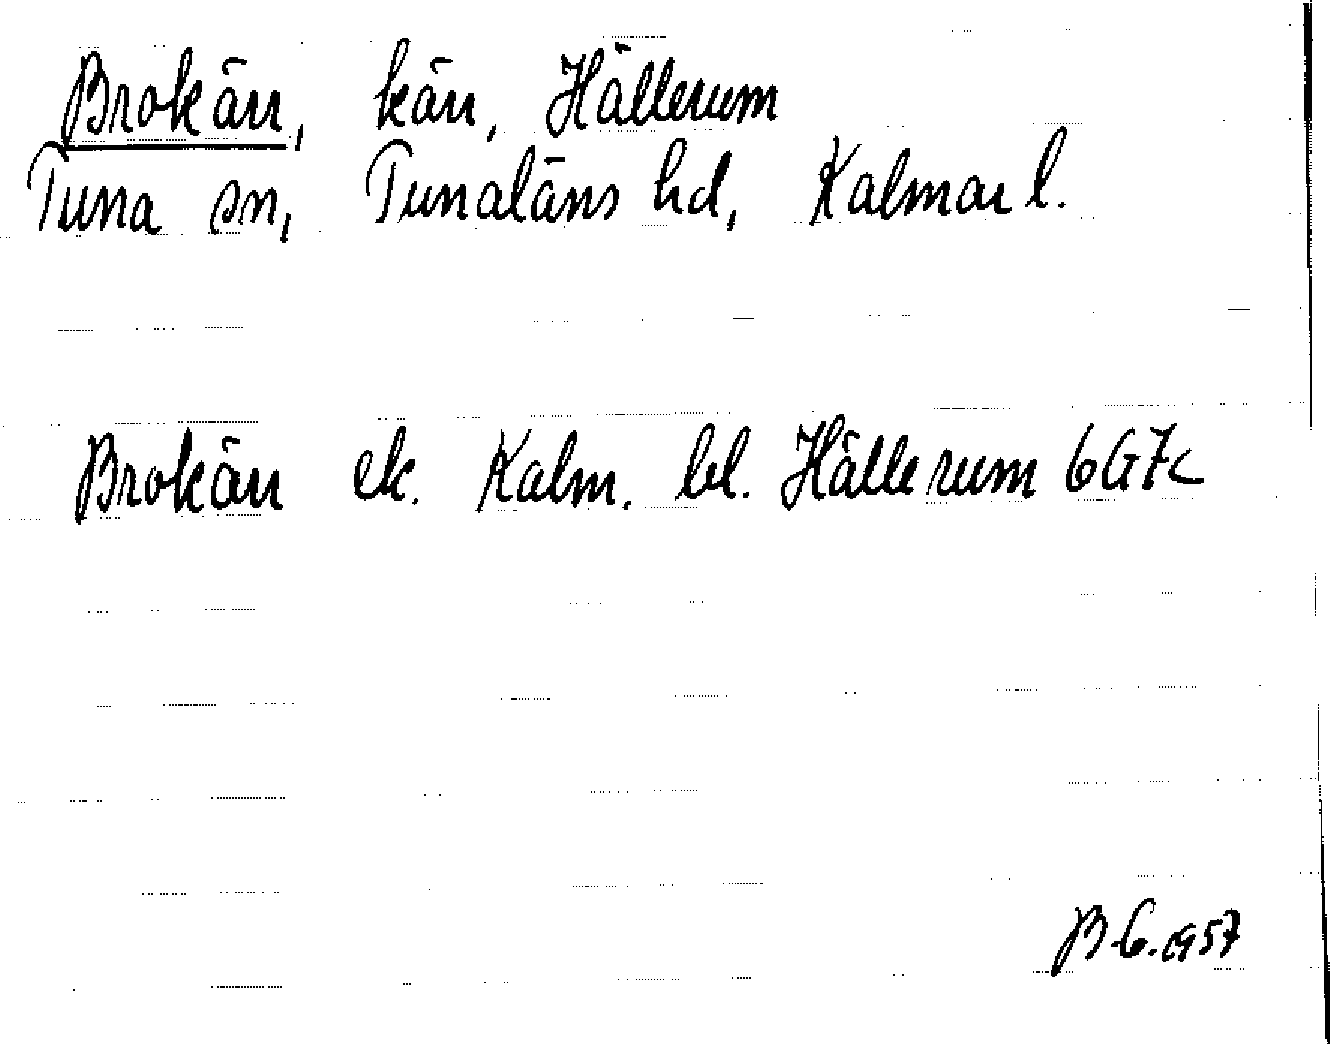 Brokärr, kärr, Hällerum
Tuna sn, Tunaläns hd, Kalmar l.
Brokärr ek. Kalm. bl. Hällerum 6G7c
B-G. 1957